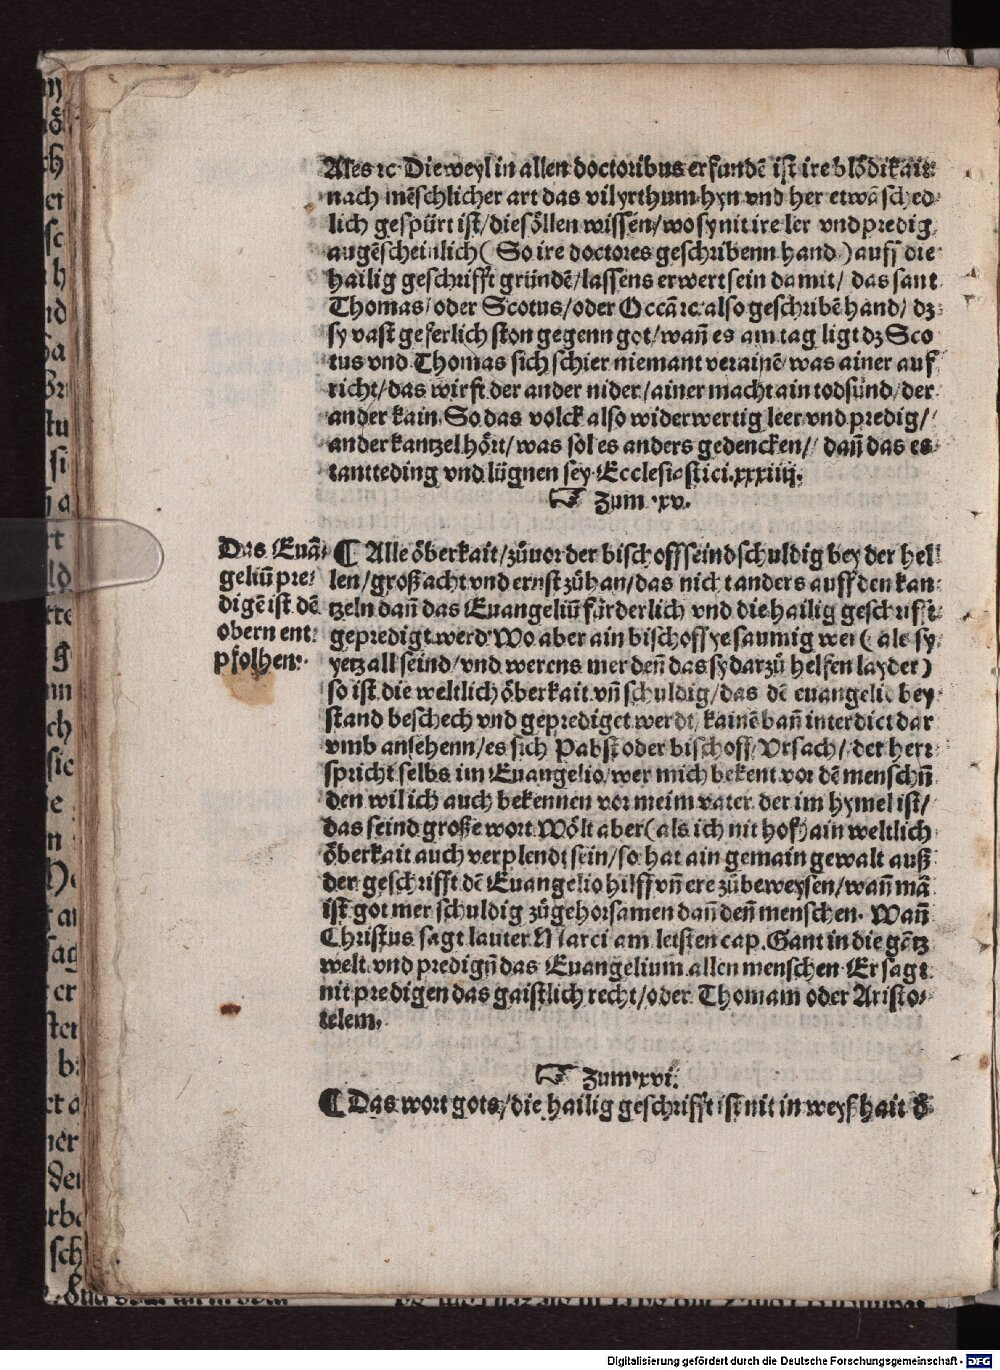 Ales ꝛc Dieweyl in allen doctoribus erfundẽ ist ire blödikait
nach mẽschlicher art das vil yrthum hyn vnd her etwã sched
lich gespürt ist/die söllen wissen/wo sy nit ire ler vnd predig
augẽscheinlich (So ire doctores geschribenn hand) auff die
hailig geschrifft gründẽ/lassens erwert sein damit/ das sant
Thomas/oder Scotus/oder Occã ꝛc also geschribẽ hand/ dz
sy vast geferlich ston gegenn got/wañ es am tag ligt dz Sco
tus vnd Thomas sich schier niemant verainẽ/was ainer auf
richt/das wirft der ander nider/ainer macht ain todsünd/der
ander kain. So das volck also widerwertig leer vnd predig/
an der kantzel hört/was sol es anders gedencken/ dañ das es
tantteding vnd lügnen sey Ecclesiastici.xxxiiij.
Zum .xv.
Das Euã⸗
geliũ pre⸗
digẽ ist dẽ
obern ent⸗
pfolhen.
¶ Alle öberkait/zůuor der bischoff seind schuldig bey der hel
len/groß acht vnd ernst zů han/das nicht anders auff den kan
tzeln dañ das Euangeliũ fürderlich vnd die hailig geschrifft
gepredigt werd Wo aber ain bischoff ye saumig wer (als sy
yetz all seind/vnd werens mer deñ das sy darzů helfen layder)
so ist die weltlich öberkait vñ schuldig/das dẽ euangelio bey
stand beschech vnd geprediget werdt/ kainẽ bañ interdict dar
vmb ansehenn/es sich Pabst oder bischoff/Vrsach/ der herr
spricht selbs im Euangelio/wer mich bekent vor dẽ menschñ
den wil ich auch bekennen vor meim vater der im hymel ist/
das seind große wort Wölt aber (als ich nit hof) ain weltlich
öberkait auch verplendt sein/so hat ain gemain gewalt auß
der geschrifft dẽ Euangelio hilff vñ ere zů beweysen/wañ mã
ist got mer schuldig zů gehorsamen dañ deñ menschen. Wañ
Christus sagt lauter Marci am letsten cap. Gant in die gẽtz
welt vnd predigñ das Euangelium allen menschen Er sagt
nit predigen das gaistlich recht/oder Thomam oder Aristo⸗
telem.
Zum xvi.
¶ Das wort gots/die hailig geschrifft ist nit in weyßhait d̄
Digitalisierung gefördert durch die Deutsche Forschungsgemeinschaft - DFG